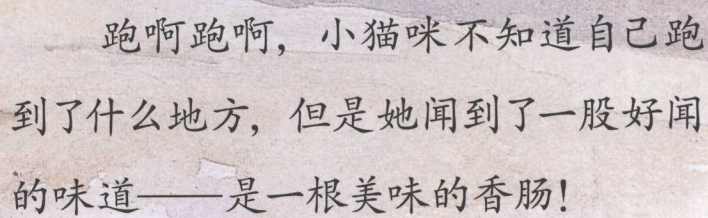 跑啊跑啊，小猫咪不知道自己跑
到了什么地方，但是她闻到了一股好闻
的味道——是一根美味的香肠！